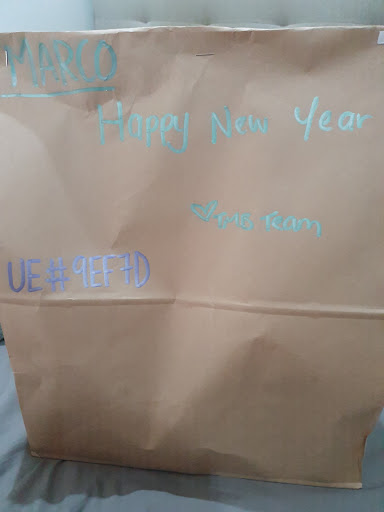 MARCO
Happy New Year
Team
UE#9EF7D